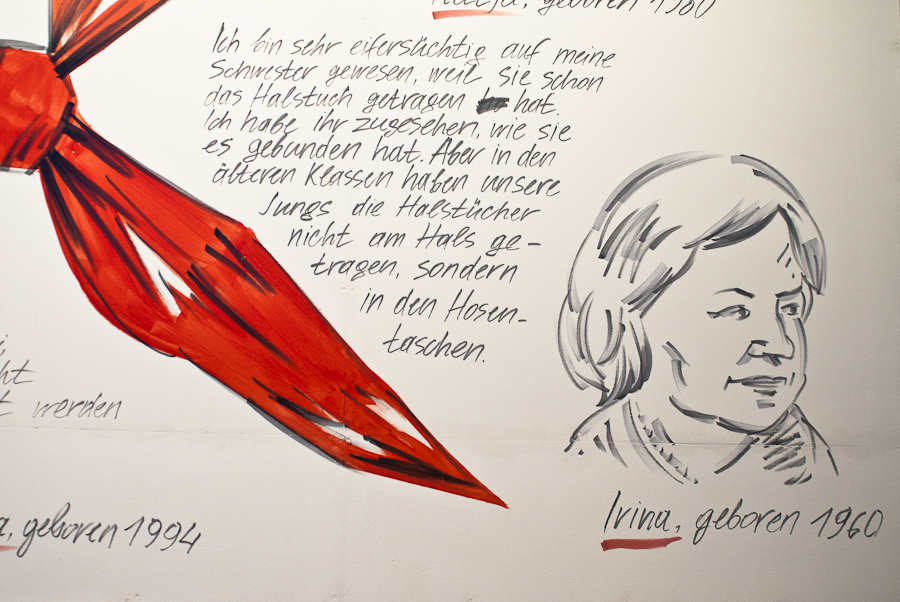 geboren 1960
Ich bin sehr eifersüchtig auf meine
Schwester gewesen, weil sie schon
das Halstuch getragen hat.
Ich habe ihr zugesehen, wie sie
es gebunden hat. Aber in den
älteren Klassen haben unsere
Jungs die Halstücher
nicht am Hals ge-
tragen, sondern
in den Hosen-
taschen.
werden
geboren 1994
Irina, geboren 1960